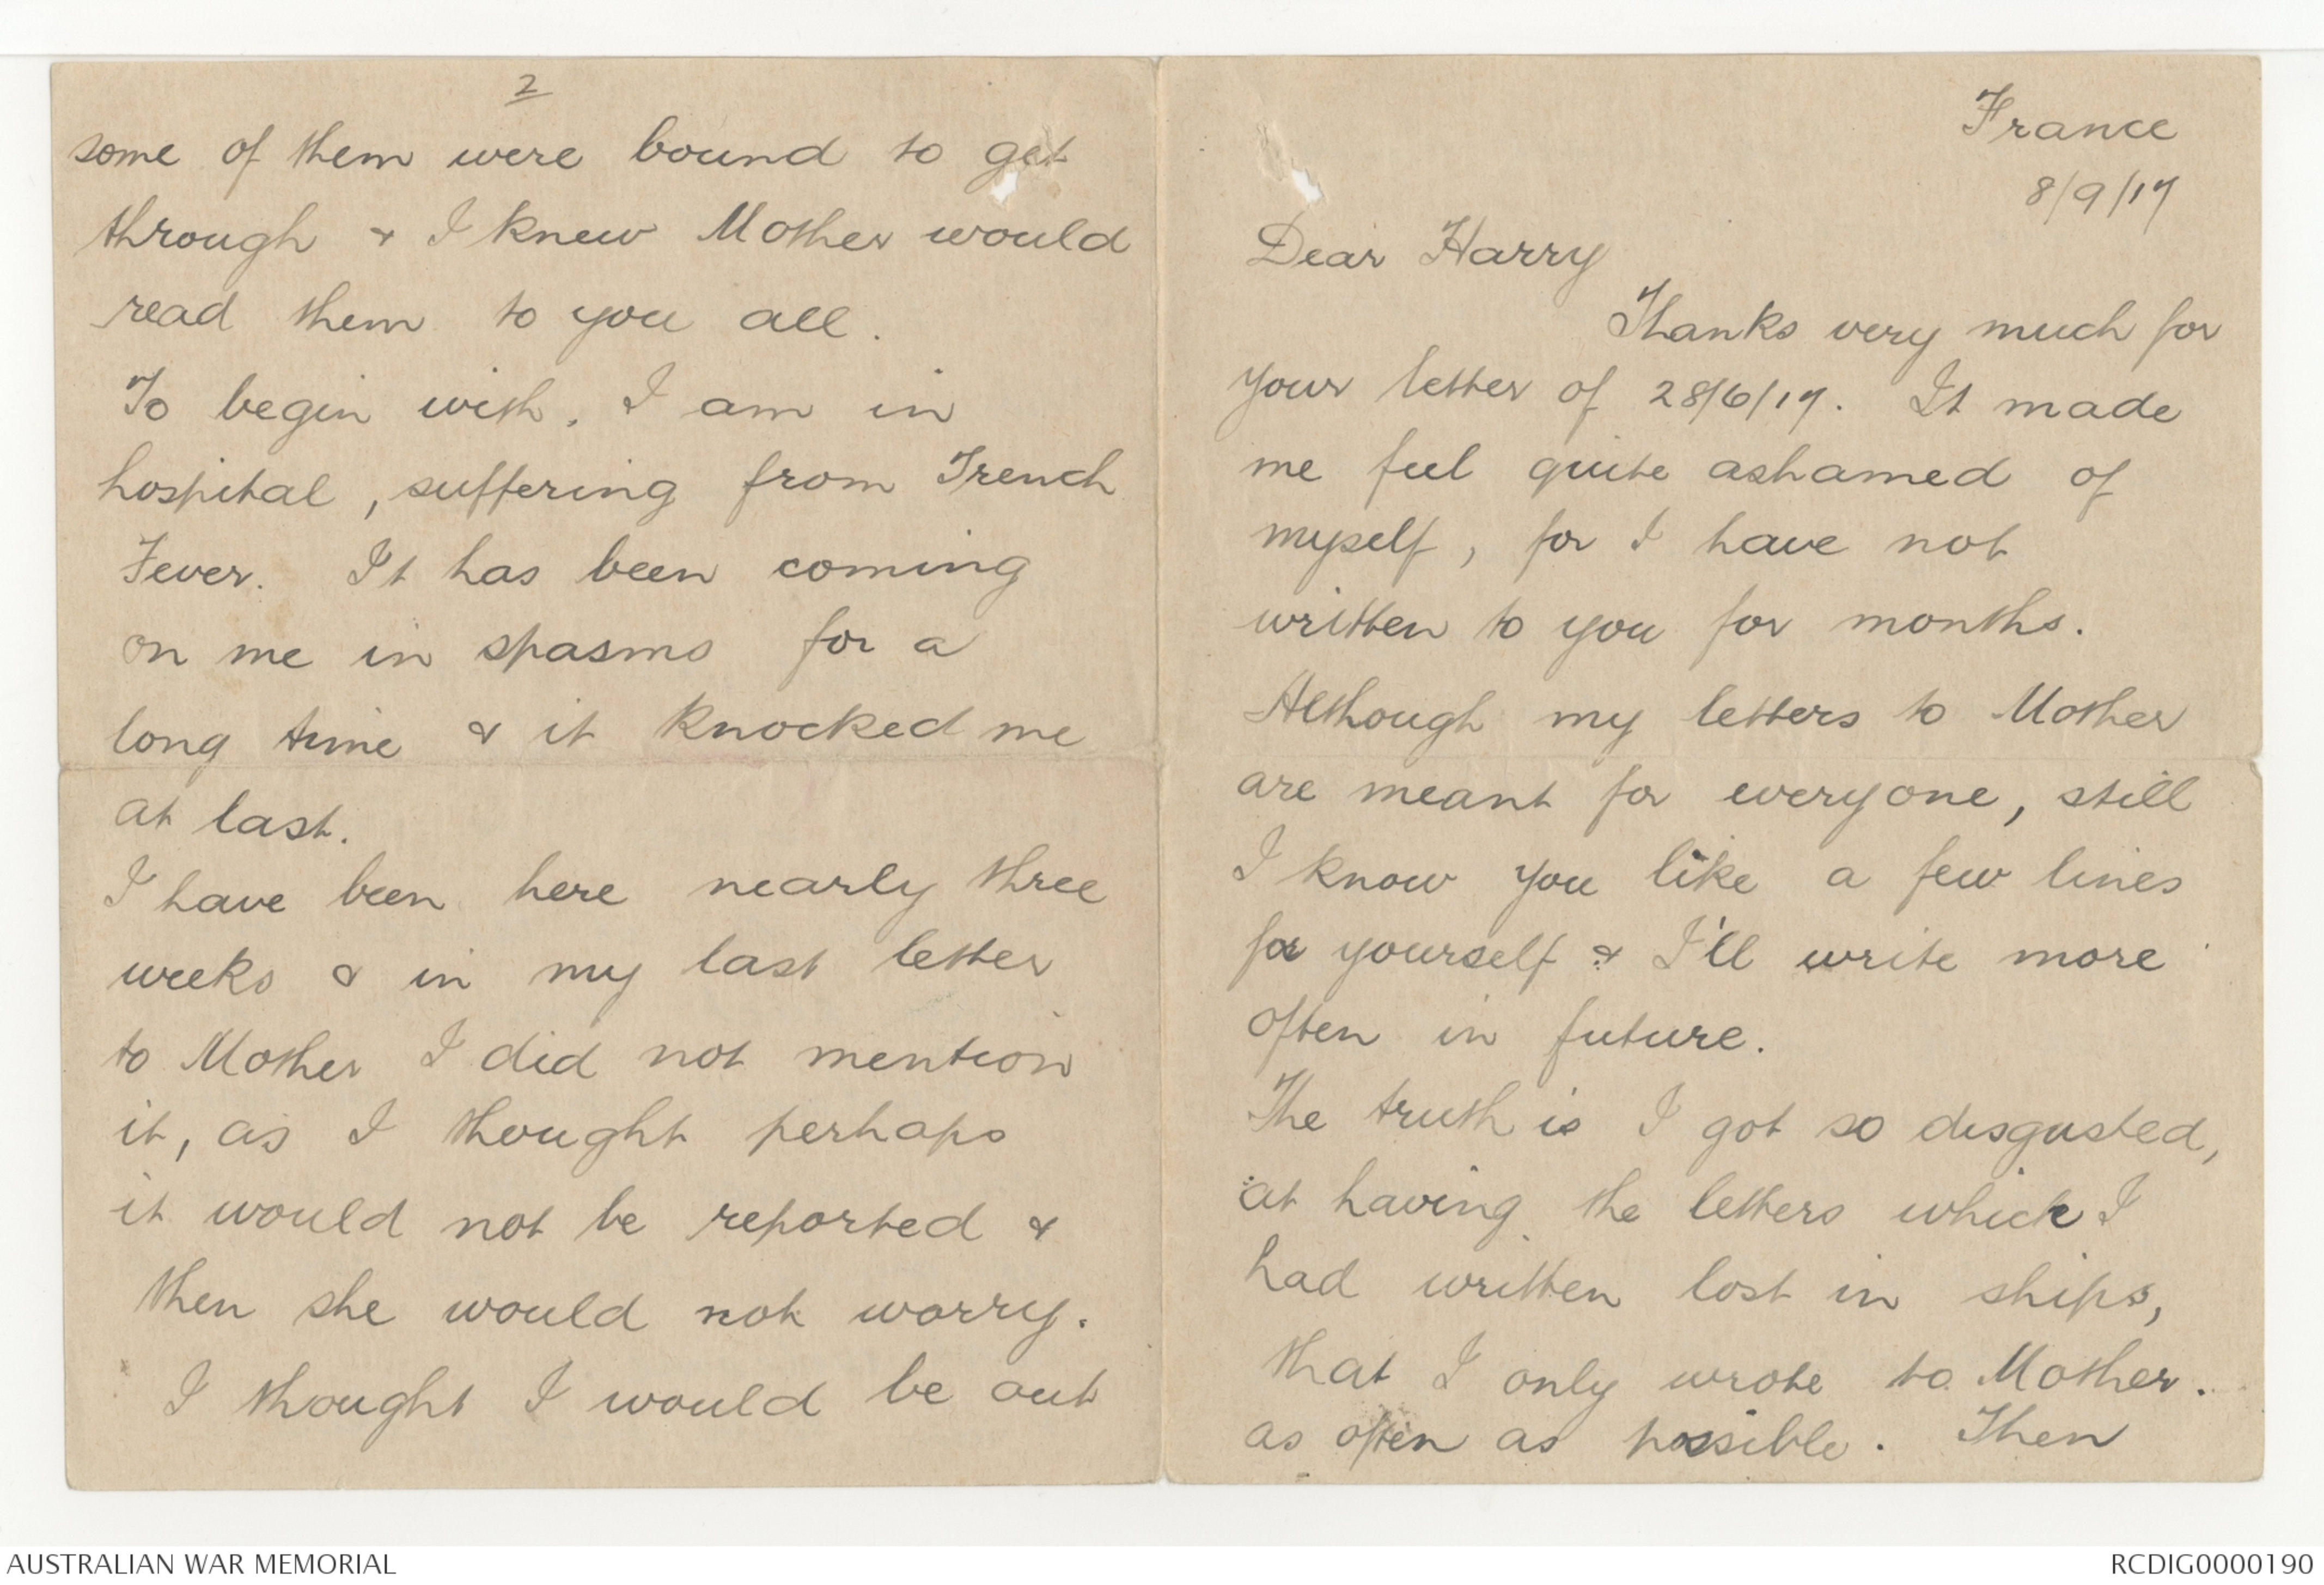 France
8/9/17
Dear Harry
Thanks very much for
your letter of 28/6/17. It made
me feel quite ashamed of
myself, for I have not
written to you for months.
Although my letters to Mother
are meant for everyone, still
I know you like a few lines
for yourself & I'll write more
often in future.
The truth is I got so disgusted,
at having the letters which I
had written lost in ships,
that I only wrote to Mother.
as often as possible. Then
2
some of them were bound to get
through & I knew Mother would
read them to you all.
To begin with, I am in
hospital, suffering from Trench
Fever. It has been coming
on me in spasms for a
long time & it knocked me
at last.
I have been here nearly three
weeks & in my last letter
to Mother I did not mention
it, as I thought perhaps
it would not be reported &
then she would not worry.
I thought I would be out
AUSTRALIAN WAR MEMORIAL
RCDIG0000190